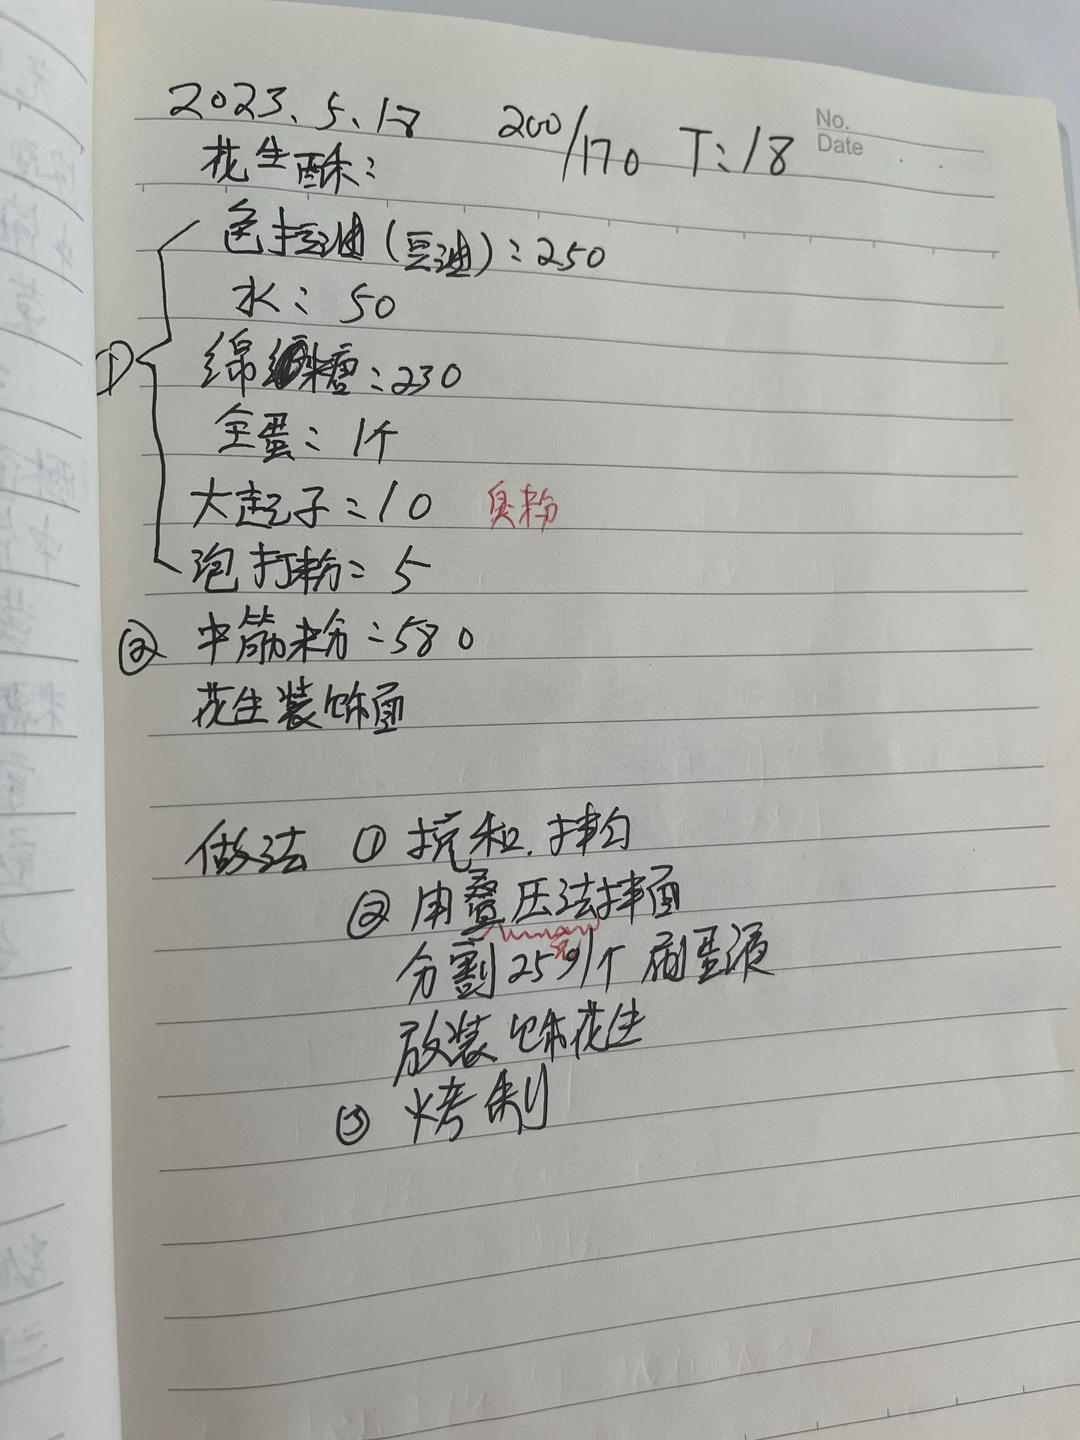 2023.5.18 200/170 T:18
No.
Date
花生酥:
① 色拉油(豆油):250
水:50
绵糖:230
全蛋:1个
大起子:10 臭粉
泡打粉:5
② 中筋粉:580
花生装饰面
做法 ① 搅和.拌匀
② 用叠压法拌面
分割25g/个 刷蛋液
放装饰花生
③ 烤制